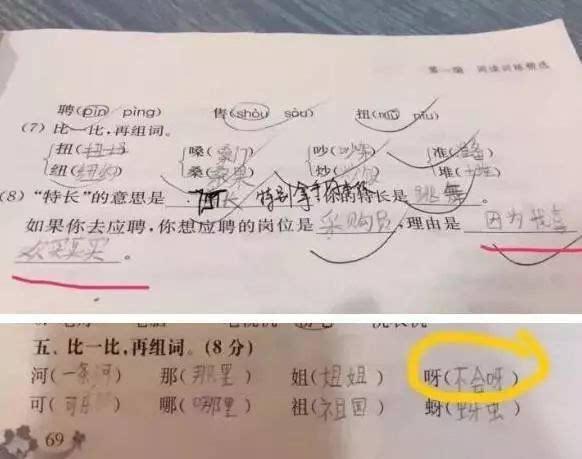 第一编 阅读训练精选
聘(pìn pìng) 售(shòu sòu) 扭(niǔ piǔ)
(7) 比一比,再组词。
扭( ) 嗓(嗓门) 吵(吵架) 准( )
纽(纽扣) 桑(桑果) 炒( ) 堆( )
(8)“特长”的意思是 特别拿手 你的特长是 跳舞 。
如果你去应聘,你想应聘的岗位是 采购员 ,理由是 因为我喜
欢买买买 。
五、比一比,再组词。(8分)
河(一条河) 那(那里) 姐(姐姐) 呀(不会呀)
可( ) 哪(哪里) 祖(祖国) 蚜(蚜虫)
69